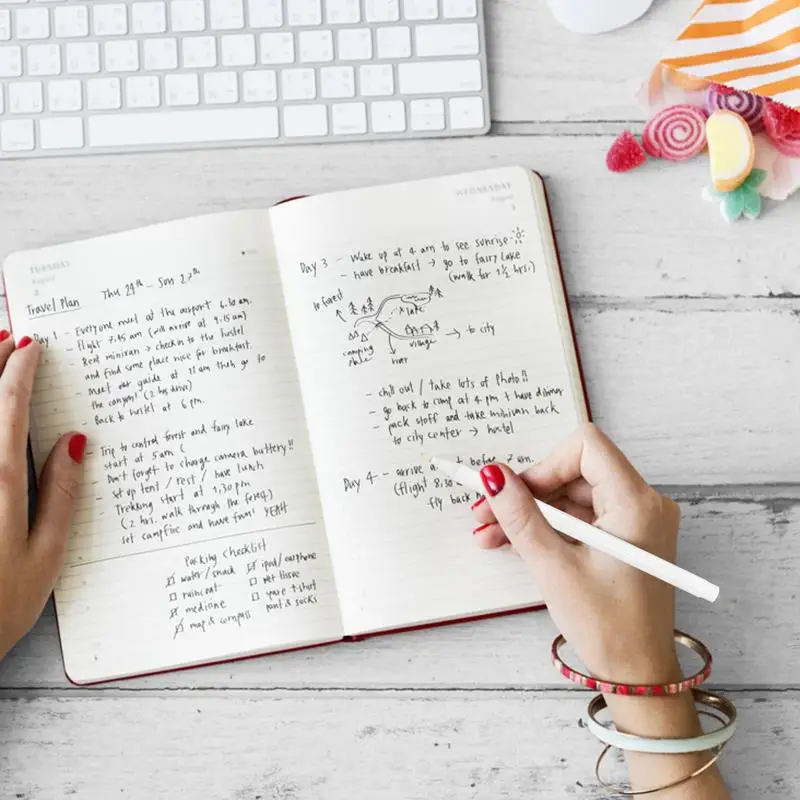 TUESDAY
August
2
Travel Plan Thu 24th - Sun 27th
Day 1 - Everyone must at the airport 6.30 am.
- Flight 7.45 am (will arrive at 9.15 am)
- Rent minivan → checkin to the hostel
and find some place nice for breakfast.
- Meet our guide at 11 am then go to
the canyon! (2 hrs drive)
- Back to hostel at 6 pm.
- Trip to central forest and fairy lake
start at 5 am (
- Don't forget to charge camera battery!!
- set up tent / Rest / have lunch
- Trekking start at 1.30 pm
(2 hrs. walk through the forest)
- set campfire and have fun! YEAH
Packing Checklist
water / snack
raincoat
medicine
map & compass
ipod / earphone
wet tissue
spare t-shirt
pant & socks
WEDNESDAY
August
3
Day 3 - Wake up at 4 am to see sunrise
- have breakfast → go to fairy Lake
(walk for 1 1/2 hrs.)
to forest
lake
camping
place
river
village
→ to city
- chill out / take lots of photo!!
- go back to camp at 4 pm + have dinner
- pack stuff and take minivan back
to city center → hostel
Day 4 - arrive before 7 am.
(flight 8.30
fly back